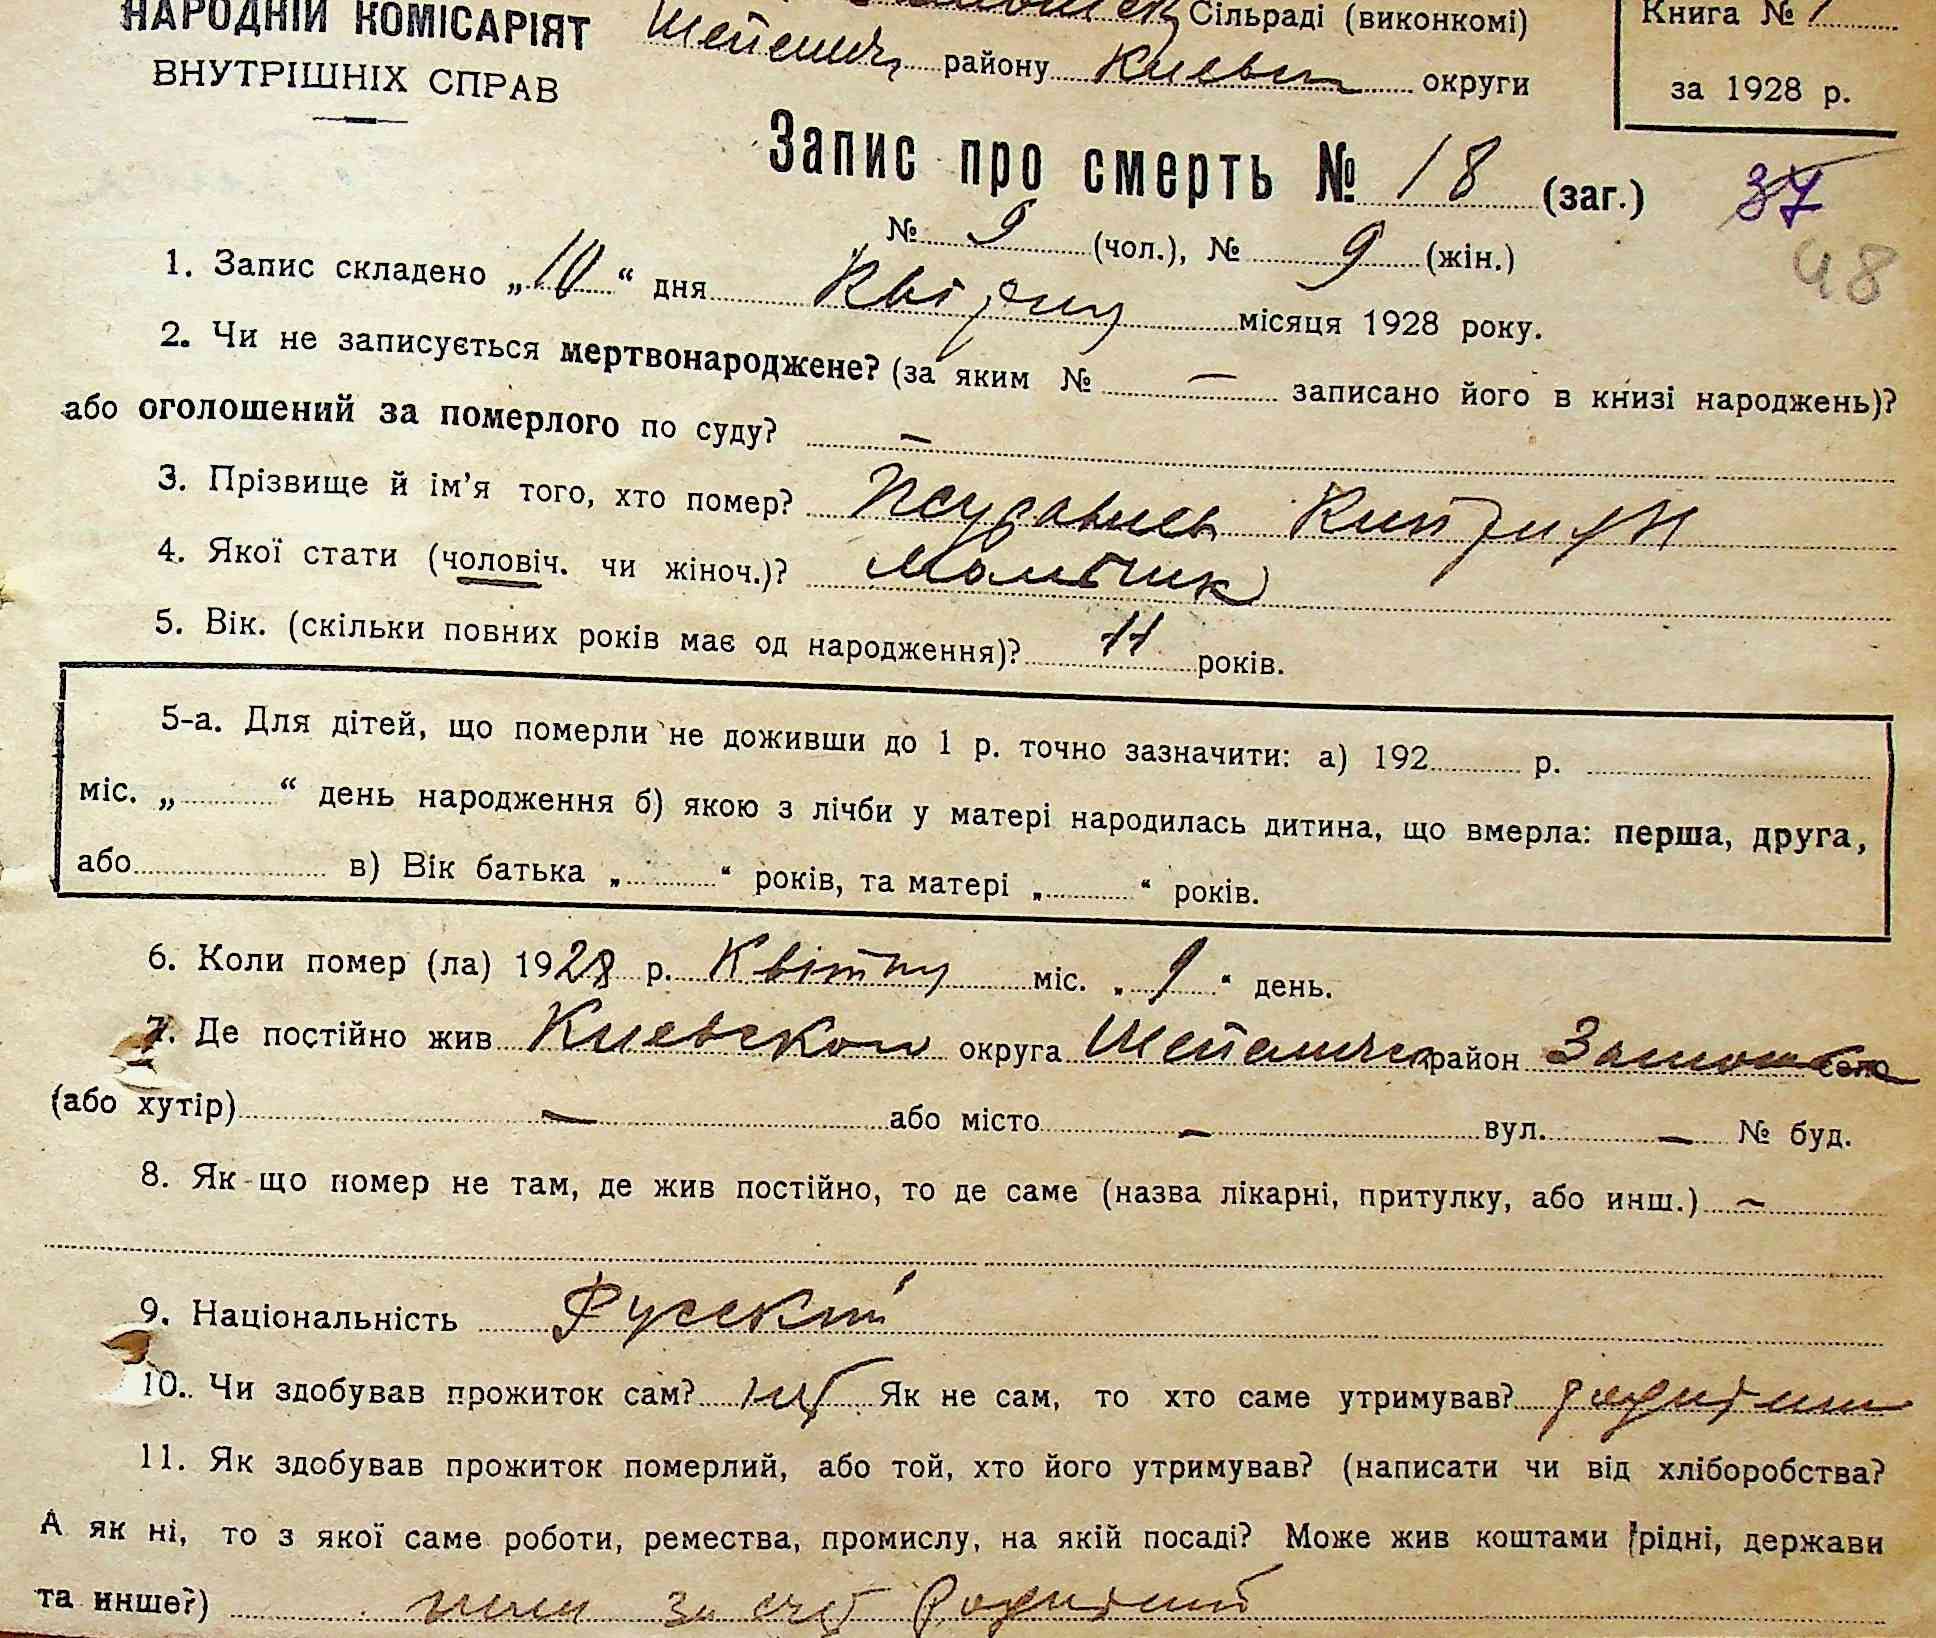 НАРОДНІЙ КОМІСАРІЯТ
ВНУТРІШНІХ СПРАВ
Сільраді (виконкомі)
району Киевск округи
Книга № 1
за 1928 р.
Запис про смерть № 18 (заг.)
37
48
№ 9 (чол.), № 9 (жін.)
1. Запис складено „10“ дня Квітну місяця 1928 року.
2. Чи не записується мертвонароджене? (за яким № — записано його в книзі народжень)?
або оголошений за померлого по суду? —
3. Прізвище й ім'я того, хто помер? Журавель
4. Якої стати (чоловіч. чи жіноч.)? Мальчик
5. Вік. (скільки повних років має од народження)? 11 років.
5-а. Для дітей, що померли не доживши до 1 р. точно зазначити: а) 192 р.
міс. „ “ день народження б) якою з лічби у матері народилась дитина, що вмерла: перша, друга,
або в) Вік батька „ “ років, та матері „ “ років.
6. Коли помер (ла) 1928 р. Квітну міс. „9“ день.
7. Де постійно жив Киевской округа район село
(або хутір) — або місто — вул. — № буд.
8. Як-що помер не там, де жив постійно, то де саме (назва лікарні, притулку, або инш.) —
9. Національність Русский
10. Чи здобував прожиток сам? нет Як не сам, то хто саме утримував? родители
11. Як здобував прожиток померлий, або той, хто його утримував? (написати чи від хліборобства?
А як ні, то з якої саме роботи, ремества, промислу, на якій посаді? Може жив коштами рідні, держави
та инше?) жил за счет родителей